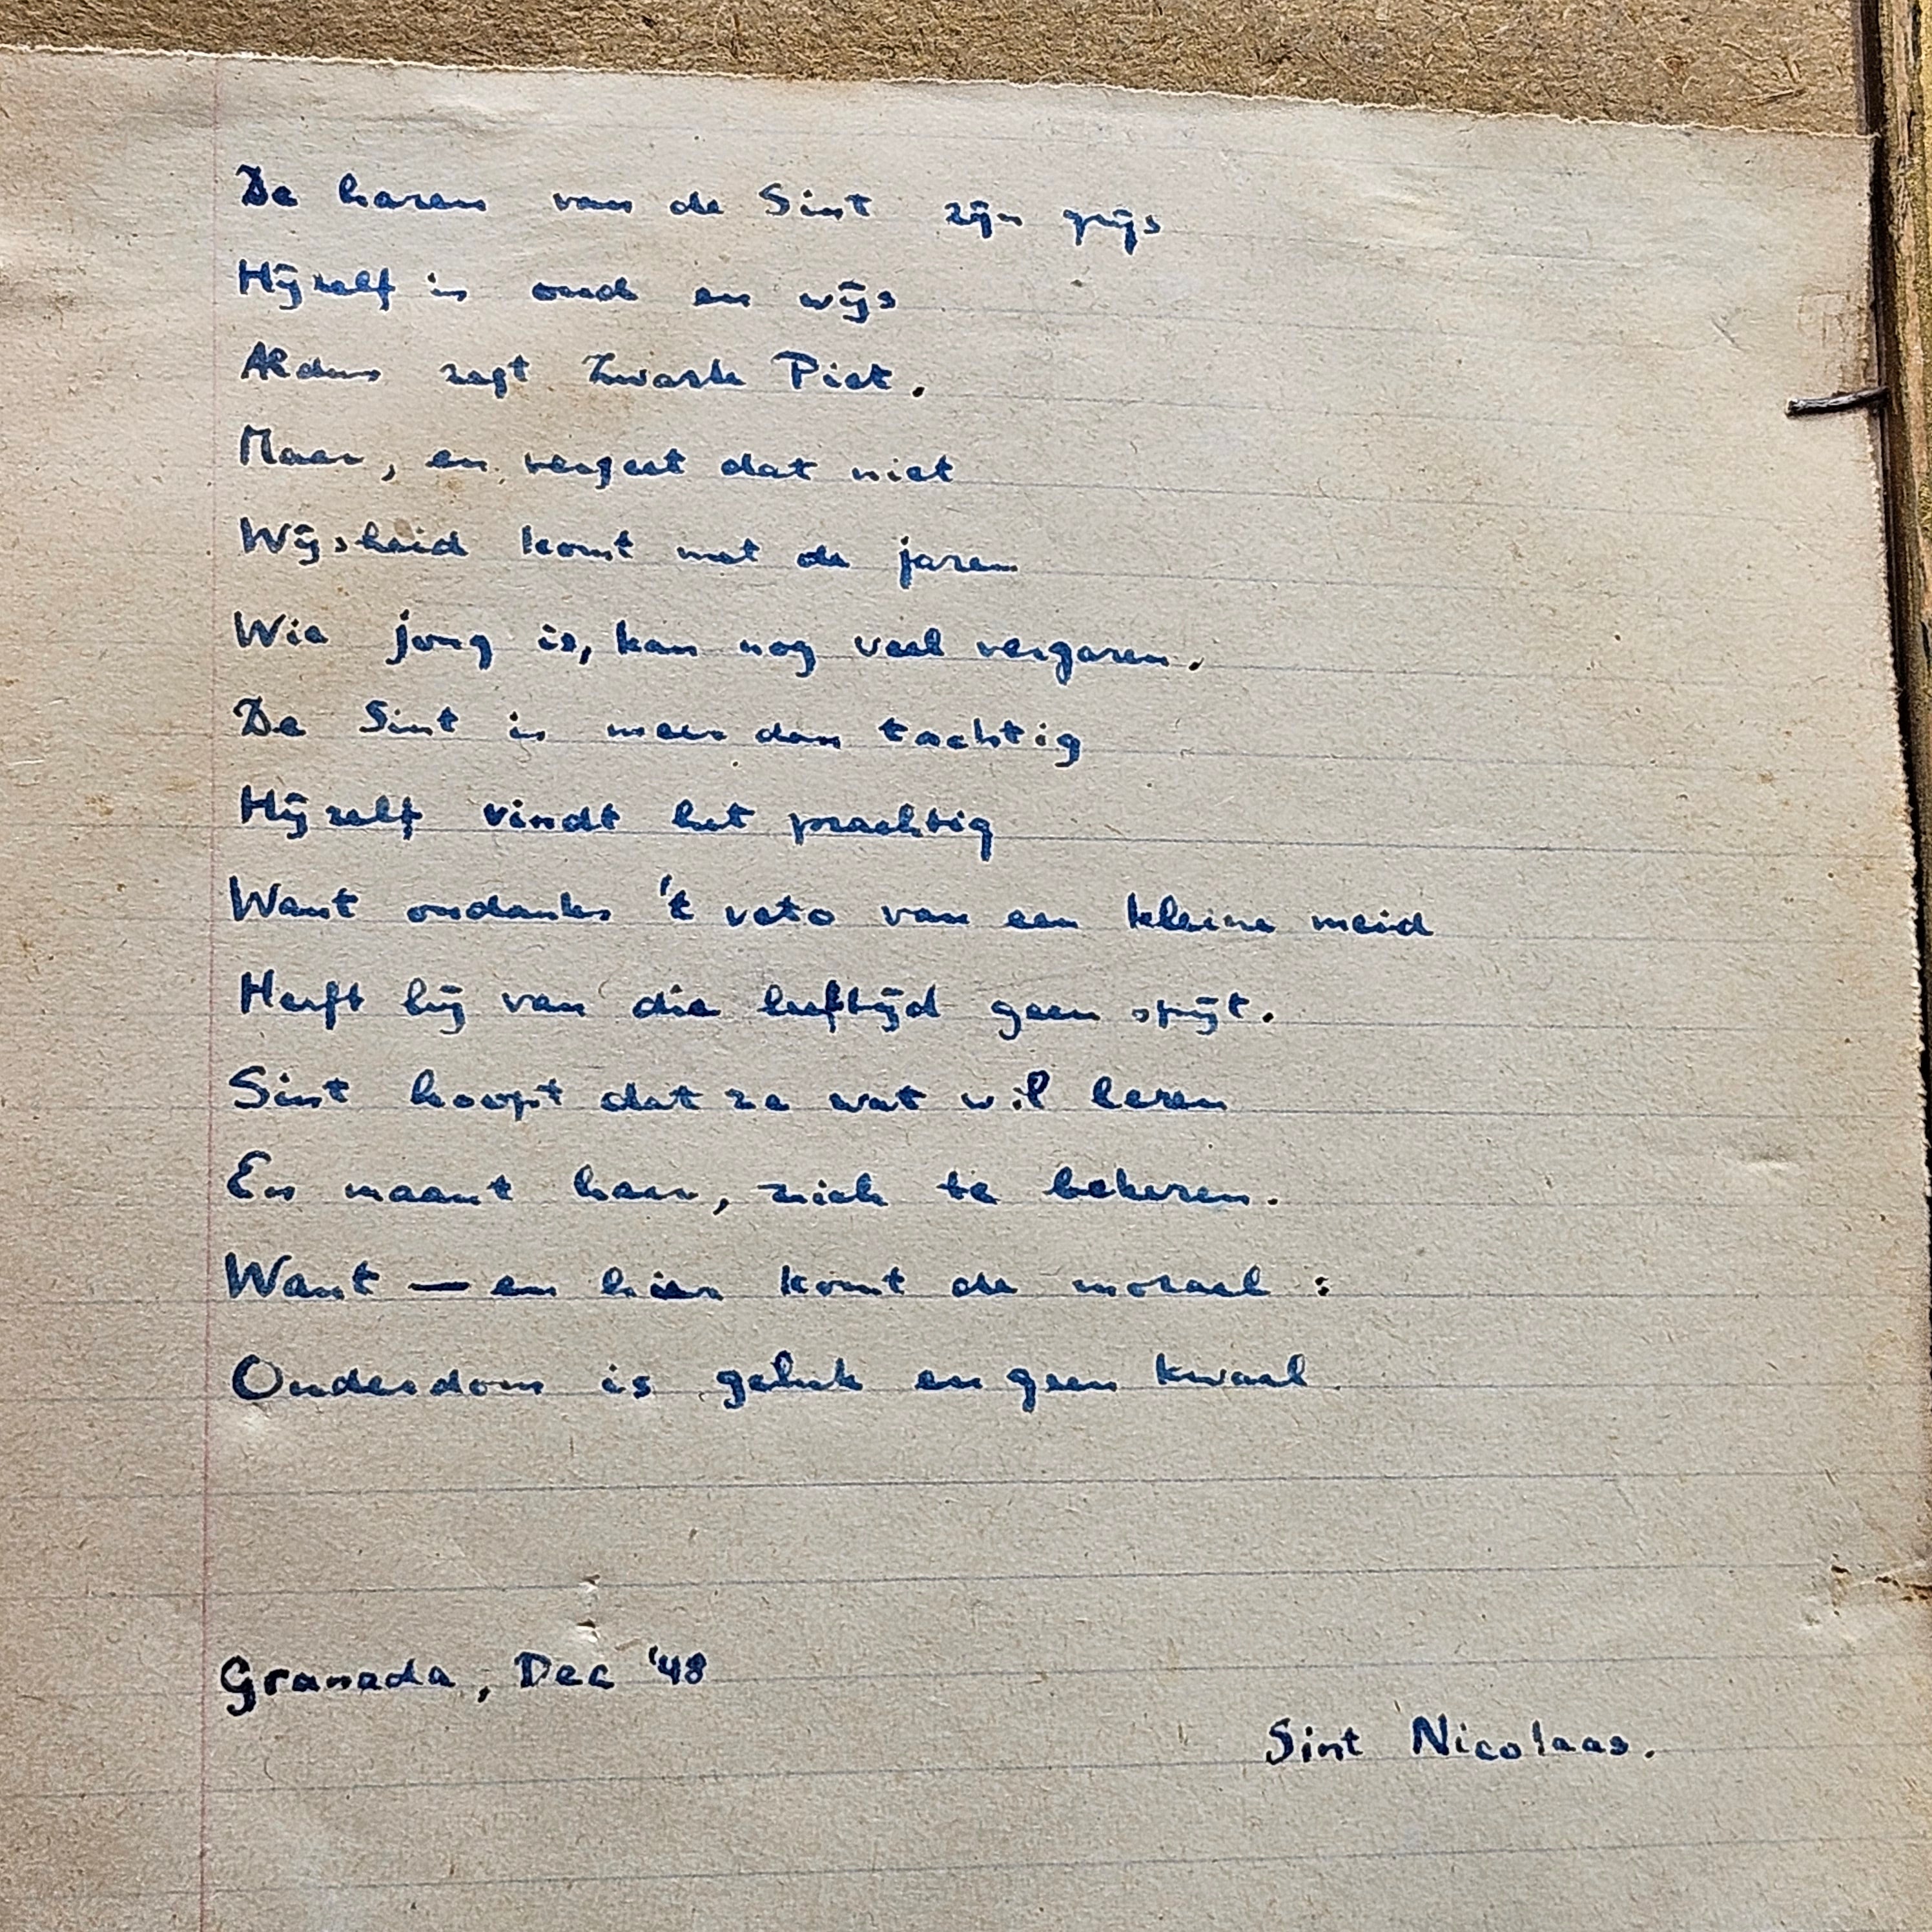 De haren van de Sint zijn grijs
Hijzelf is oud en wijs
Aldus zegt Zwarte Piet.
Maar, en vergeet dat niet
Wijsheid komt met de jaren
Wie jong is, kan nog veel vergaren.
De Sint is meer dan tachtig
Hijzelf vindt het prachtig
Want ondanks 't veto van een kleine meid
Heeft hij van die leeftijd geen spijt.
Sint hoopt dat ze wat wil leren
En maant haar, zich te bekeren.
Want — en hier komt de moraal :
Ouderdom is geluk en geen kwaal
Granada, Dec '48
Sint Nicolaas.